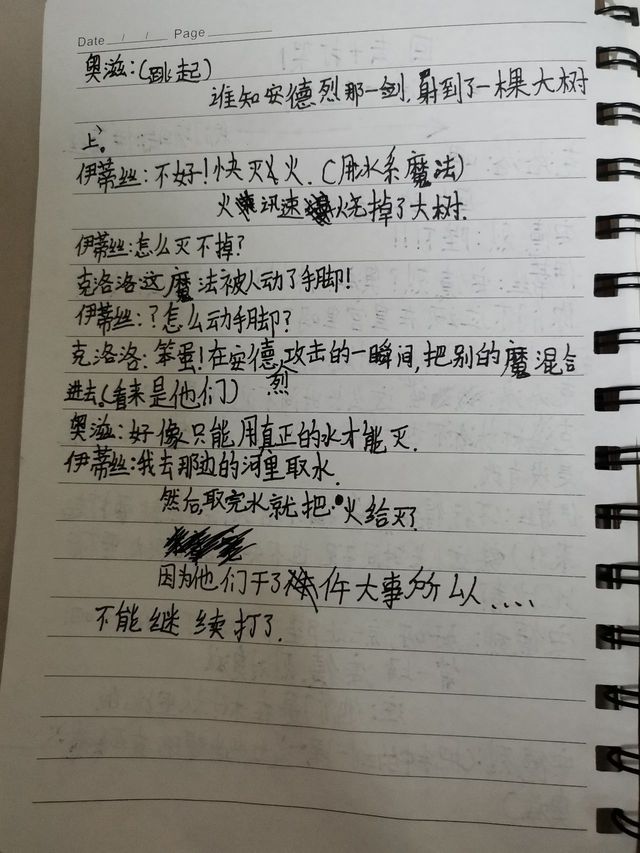 Date / / Page
奥滋：（跳起）
谁知安德烈那一剑，射到了一棵大树
上。
伊蒂丝：不好！快灭火．（用水系魔法）
火迅速烧掉了大树．
伊蒂丝：怎么灭不掉？
克洛洛这魔法被人动了手脚！
伊蒂丝：？怎么动手脚？
克洛洛：笨蛋！在安德烈攻击的一瞬间，把别的魔混合
进去。（看来是他们）
奥滋：好像只能用真正的水才能灭．
伊蒂丝：我去那边的河里取水．
然后，取完水就把火给灭了
因为他们干了件大事所以．．．．
不能继续打了．